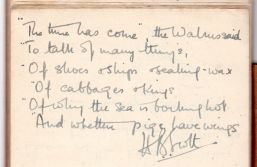 "The time has come", the Walrus said
"To talk of many things,
"Of shoes & ships & sealing-wax
"Of cabbages & kings
"Of why the sea is boiling hot
"And whether pigs have wings